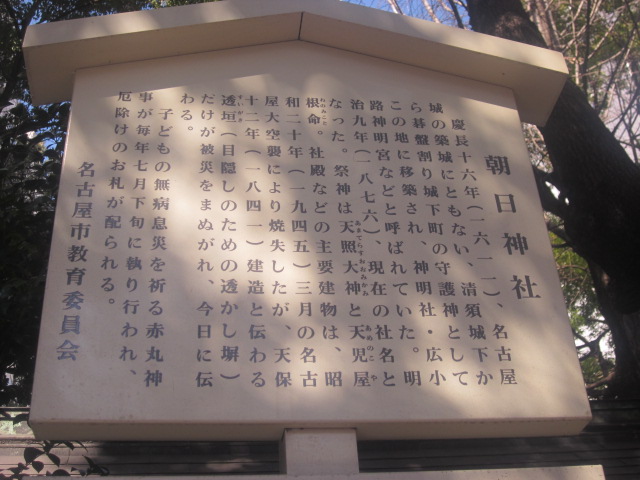 朝日神社
慶長十六年(一六一一)、名古屋
城の築城にともない、清須城下か
ら碁盤割り城下町の守護神として
この地に移築され、神明社・広小
路神明宮などと呼ばれていた。明
治九年(一八七六)、現在の社名と
なった。祭神は天照大神と天児屋
あまてらすおおみかみ
あめのこや
根命。社殿などの主要建物は、昭
ねのみこと
和二十年(一九四五)三月の名古
屋大空襲により焼失したが、天保
十二年(一八四一)建造と伝わる
透垣(目隠しのための透かし塀)
すいがき
だけが被災をまぬがれ、今日に伝
わる。
子どもの無病息災を祈る赤丸神
事が毎年七月下旬に執り行われ、
厄除けのお札が配られる。
名古屋市教育委員会